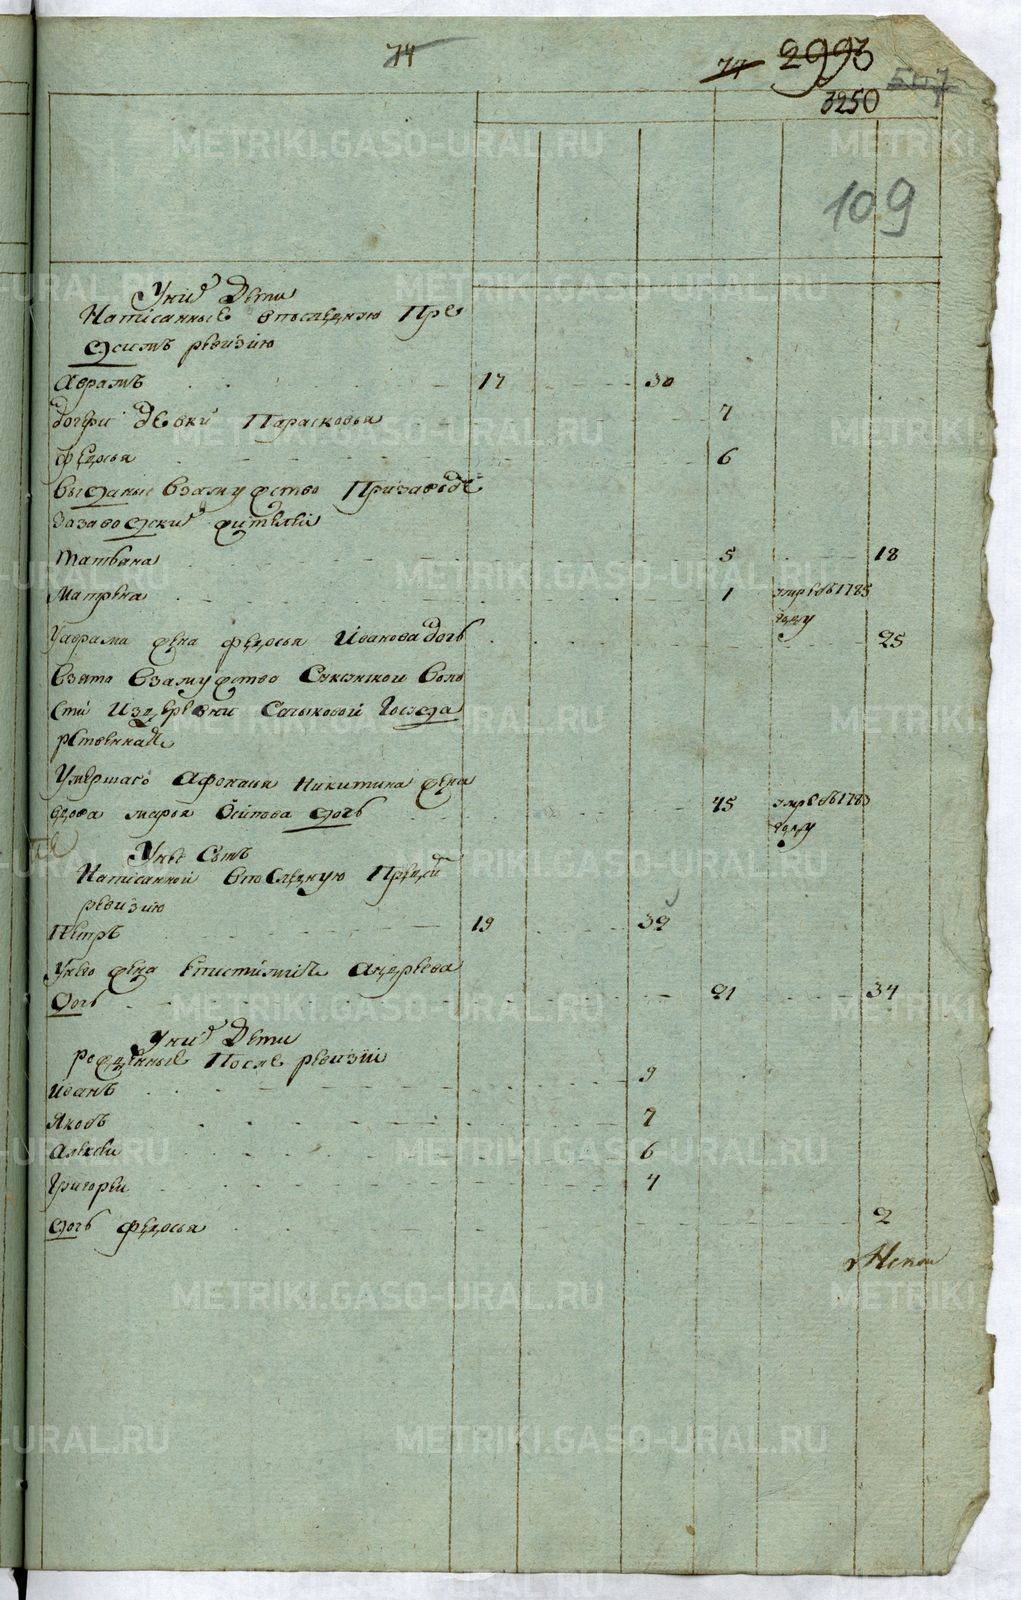 74
77 2993
547
3250
109
У них Дети
Написанные в последнюю Пре
дсимъ ревизию
Аврамъ 17 30
дочери девки Парасковья 7
Федосья 6
выданые взамужство При заводе
за заводские жители
Татьяна 5 18
Матрена 1 умре въ 1785
году
У Аврама жена Федосья Иванова дочь 25
взята взамужство Суксунской воло
сти из деревни Сасыковой Государ
рственная
Умершаго Афонасья Никитина жена
вдова Марья Осипова дочь 45 умре въ 1783
году
У нее Сынъ
Написанной в последнюю Пред
ревизию
Петръ 19 32
У него жена Епистимия Андреева
Дочь 21 34
У них Дети
рожденные После ревизии
Иванъ 9
Яковъ 7
Алексеи 6
Григореи 4
дочь Федосья 2
METRIKI.GASO-URAL.RU